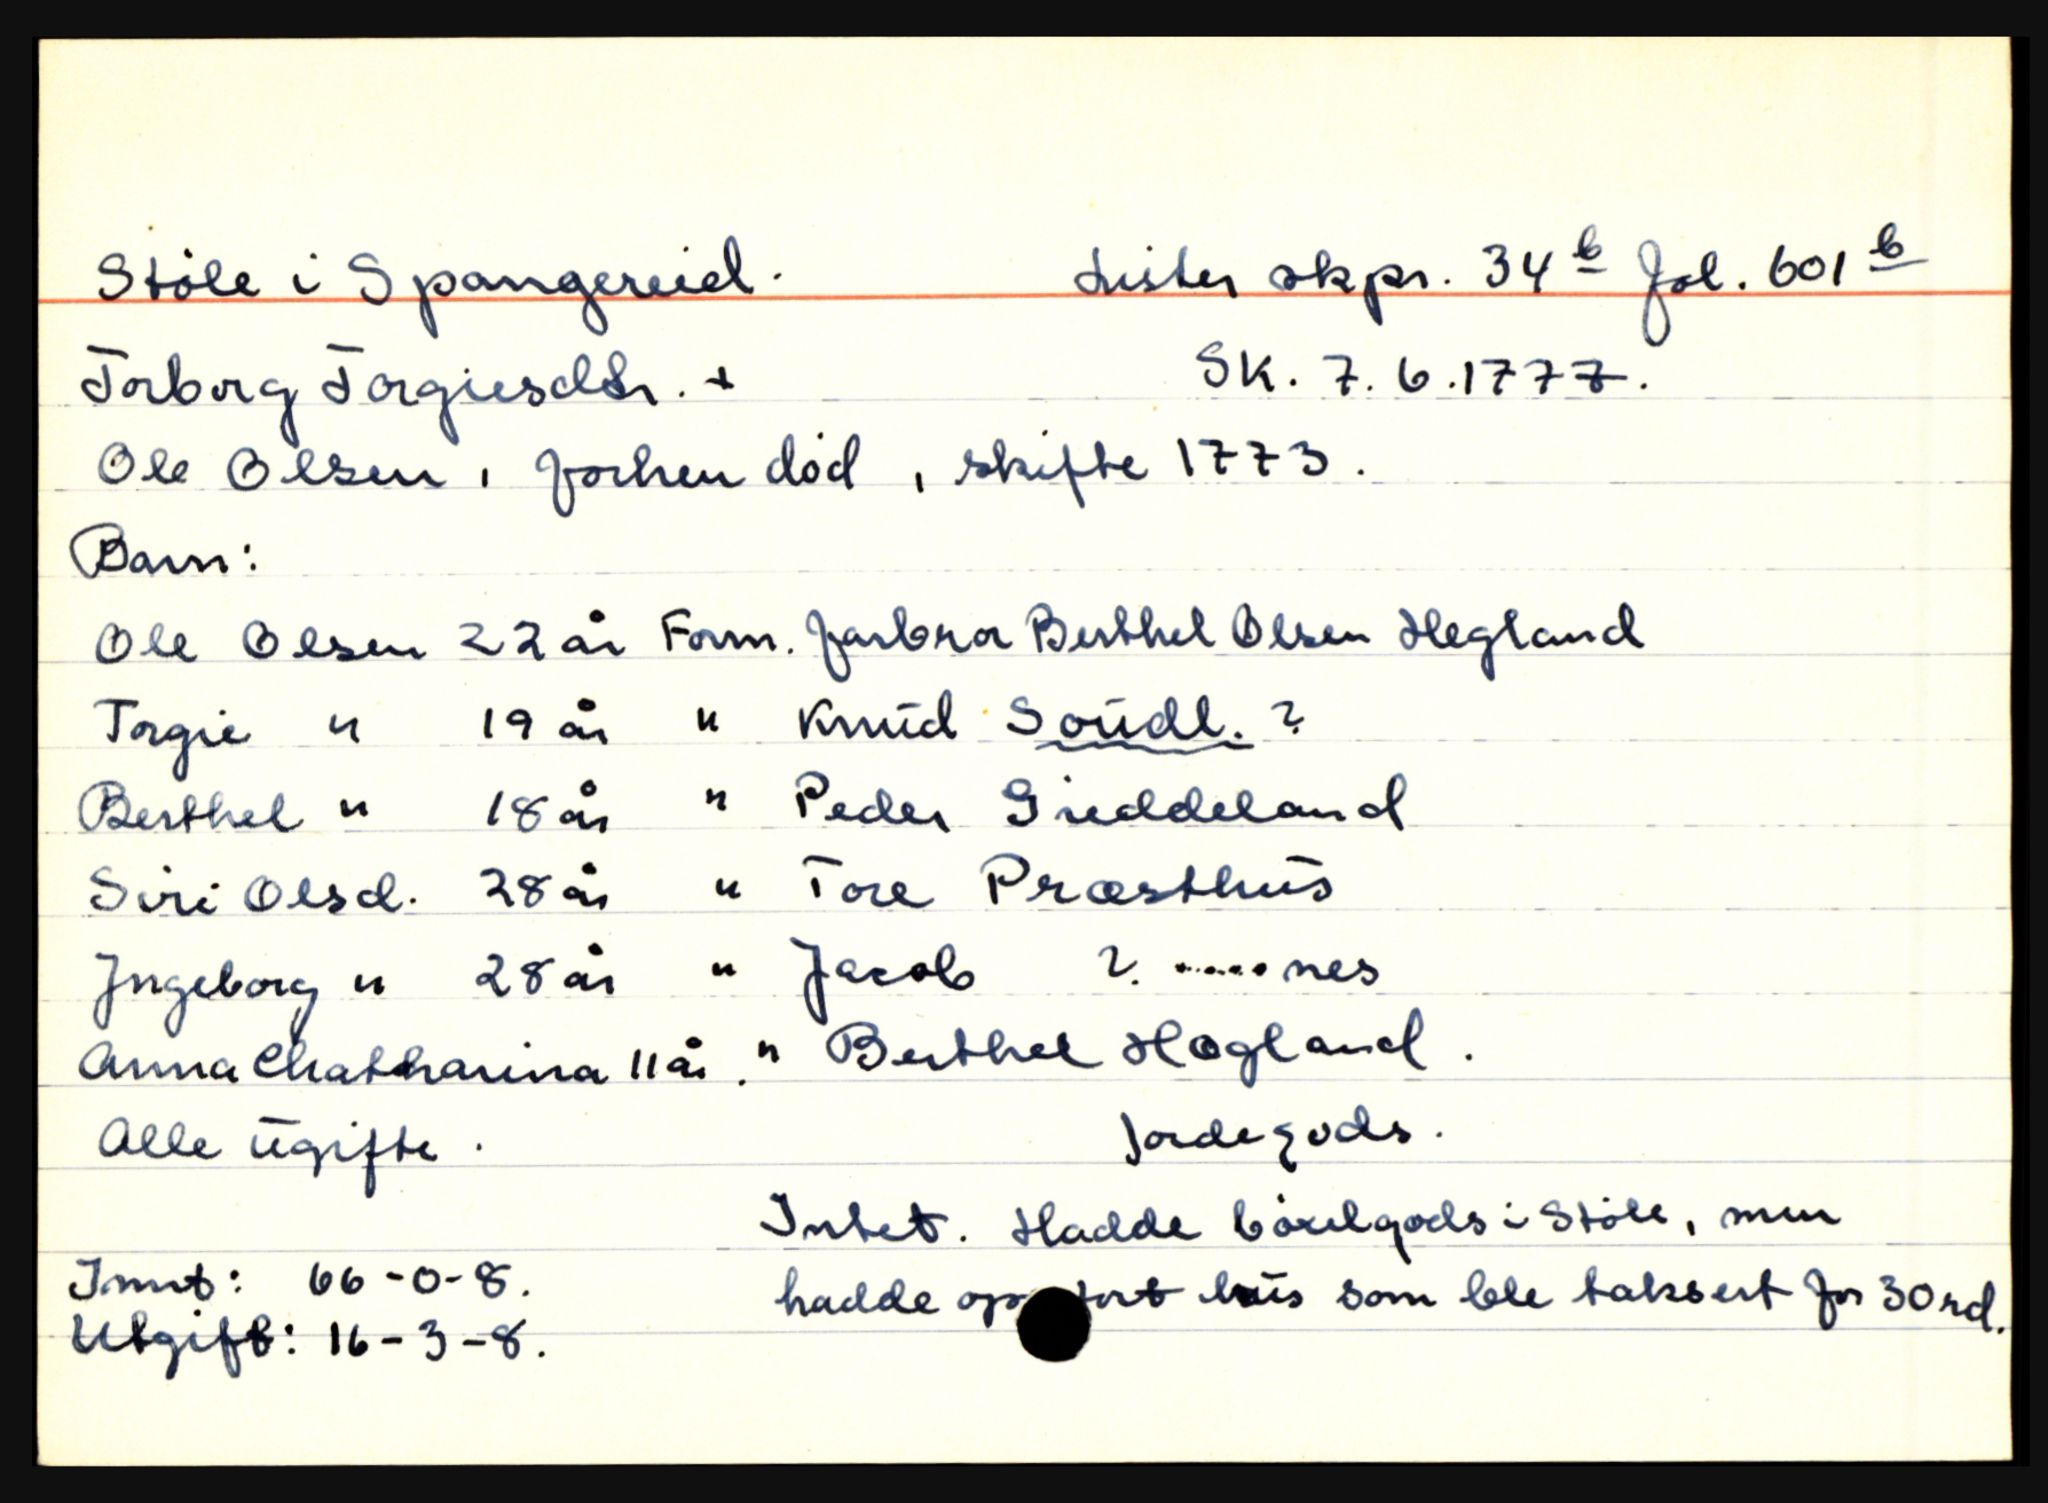 Støle i Spangereid. Lister skpr. 34 b fol. 601 b
Torborg Torgiesdtr. + SK. 7.6.1777.
Ole Olsen, forhen død, skifte 1773.
Barn:
Ole Olsen 22 år Form. farbror Berthel Olsen Hegland
Torgie " 19 år " Knud Soudl. ?
Berthel " 18 år " Peder Gieddeland
Siri Olsd. 28 år " Tore Præsthus
Ingeborg " 28 år " Jacob ? ......nes
Anna Chatharina 11 år. " Berthel Høgland.
Alle ugifte. Jordegods.
Intet. Hadde bøxelgods i Støle, men
Innt: 66-0-8. hadde oppført hus som ble taksert for 30 rd.
Utgift: 16-3-8.